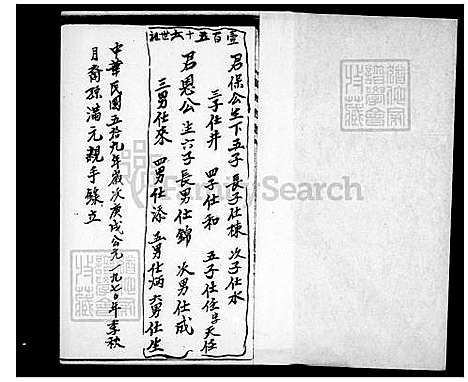 壹百五十六世祖
君保公生下五子 長子仕棟 次子仕水
三子仕井 四子仕和 五子仕住 早夭任
君恩公生六子長男仕錦 次男仕成
三男仕來 四男仕添 五男仕炳 六男仕生
中華民國五拾九年歲次庚戌公元一九七0年季秋
月裔孫滿元親手錄立
FamilySearch